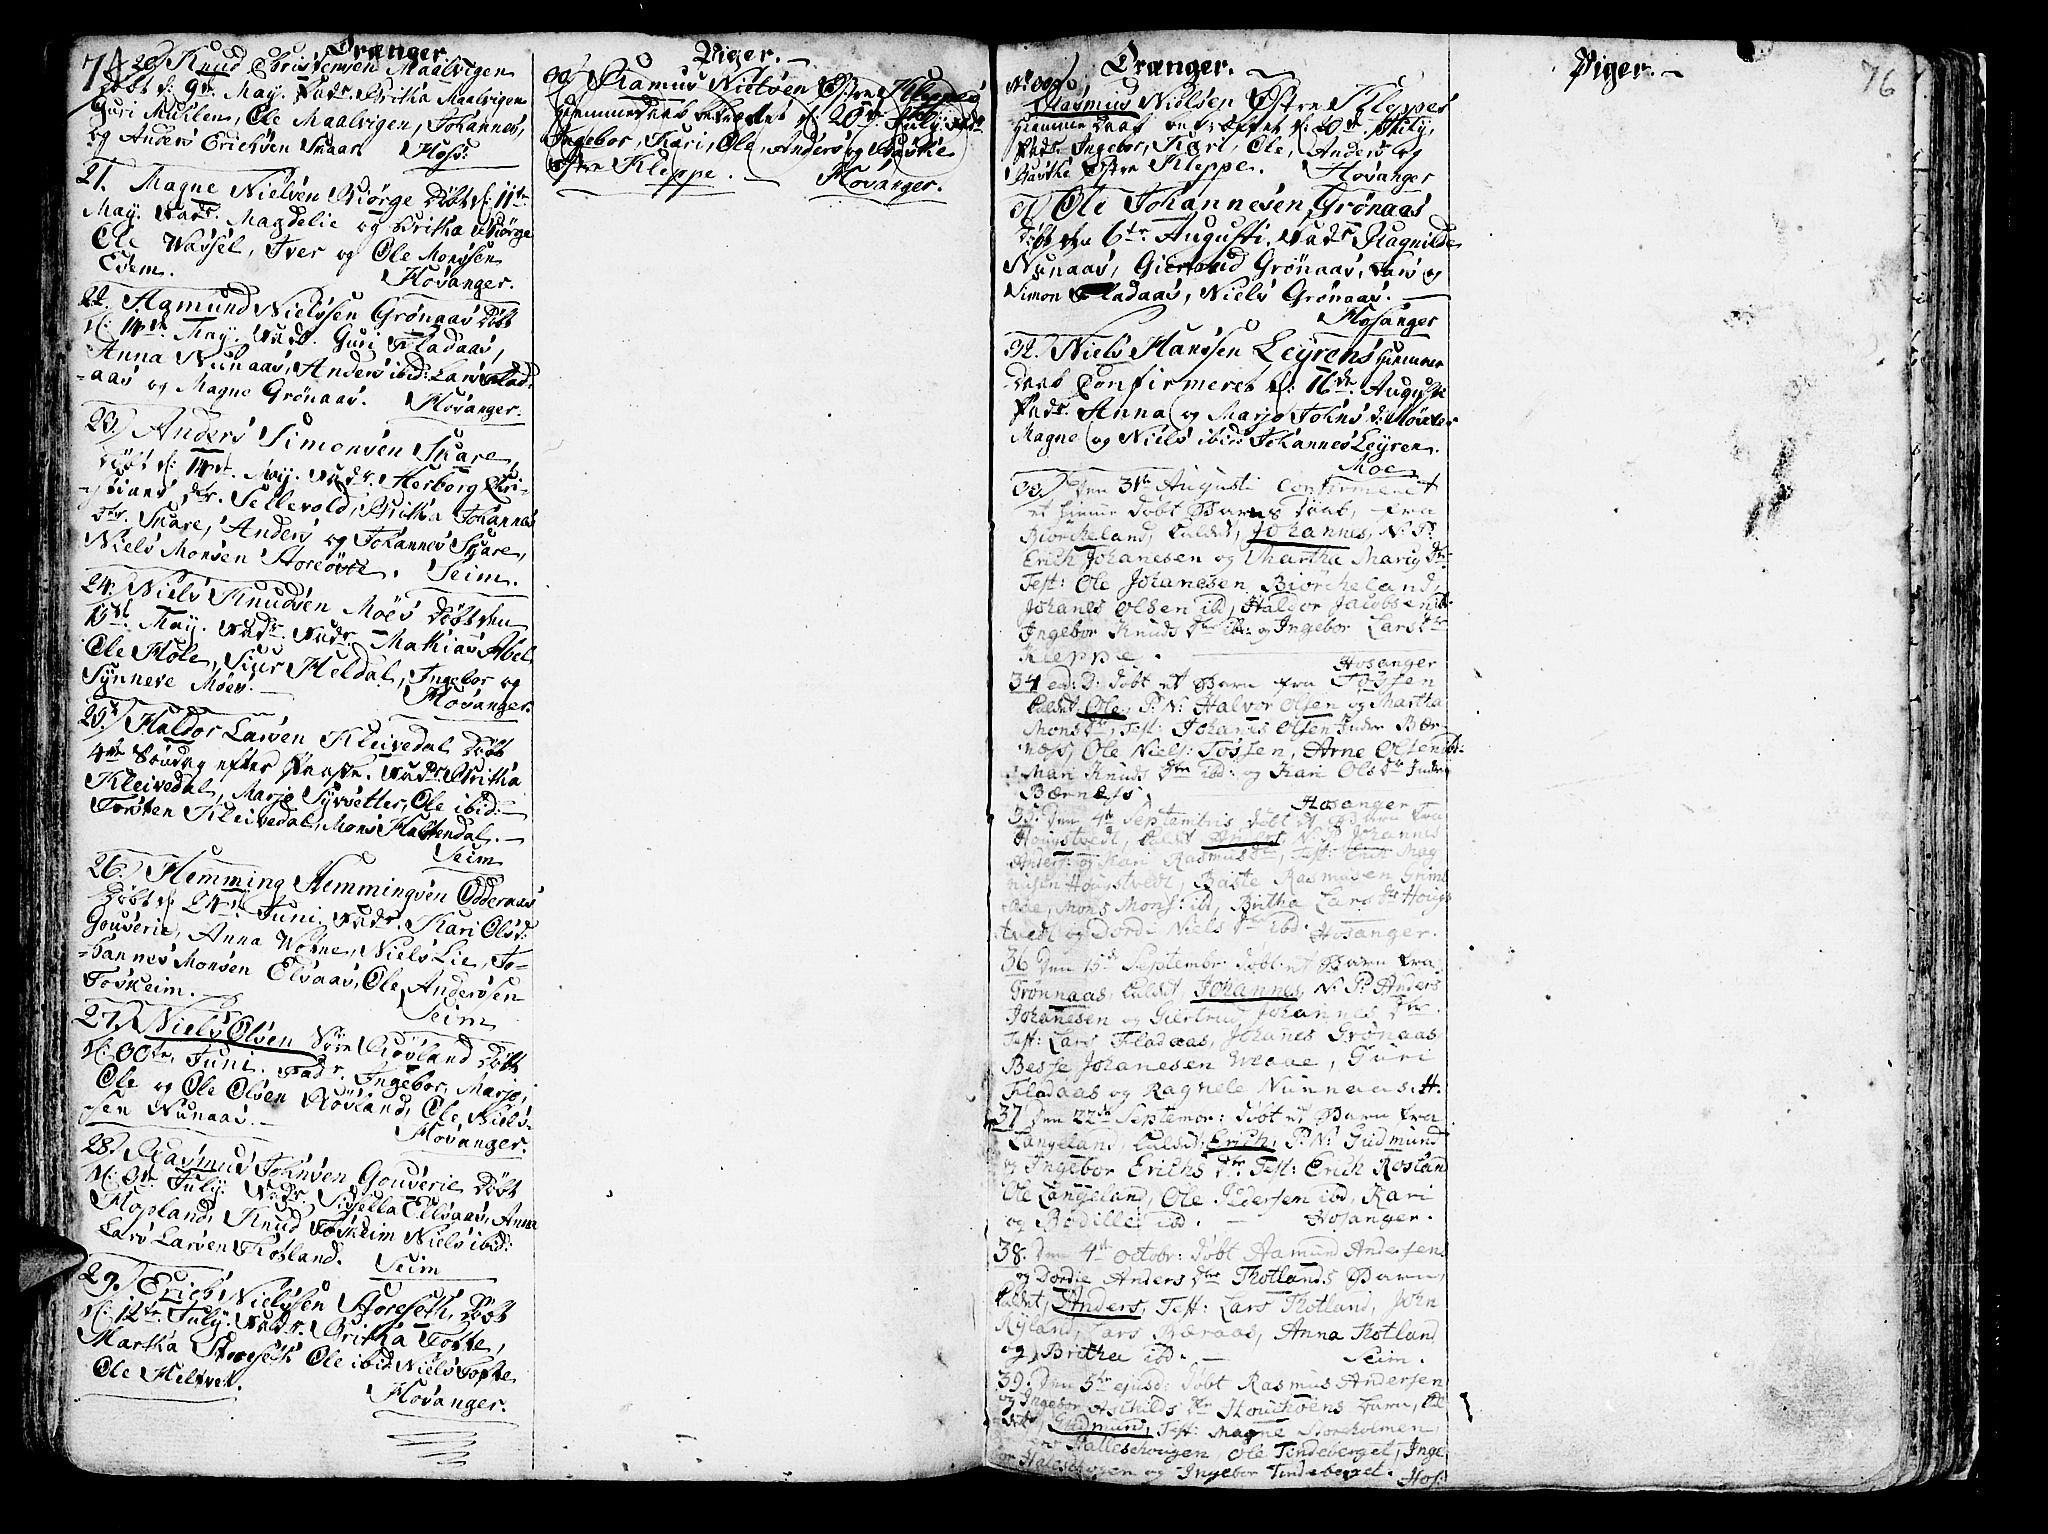 74
Drænger.
20) Knud Christensen Maalvigen
Døbt d: 9de May. Fadr. Britha Maalvigen
Guri Muhlen, Ole Maalvigen, Johannes,
og Anders Erichsen Snaar. Hoss:
21. Magne Nielsen Biørge Døbt d: 11te
May. Fadr. Magdelie og Britha Biørge
Ole Wassel, Iver og Ole Monssen
Edem. Hosanger.
22. Agmund Nielssen Grønaas Døbt
d: 14de May. Fadr. Guri Fladaas,
Anna Nunaas, Anders ibid: Lars Flad-
-aas og Magne Grønaas. Hosanger.
23) Anders Simonsen Skare
Døbt d: 14de May. Fadr. Herborg Chri-
-stians dtr. Sellevold, Britha Johannes
dtr. Skare, Anders og Johannes Skare,
Niels Monsen Storeøvre. Seim.
24. Niels Knudsen Moes Døbt den
May. Fadr. Mathias Abel
Ole Hole, Siur Heldal, Ingebor og
Synneve Moes. Hosanger.
25. Haldor Larsen Kleivedal Døbt
4de Søndag efter Paaske. Fadr. Britha
Kleivedal, Marje Syrsetter, Ole ibid:
Torsten Kleivedal, Mons Haltendal.
Seim
26. Hemming Hemmingsen Odderaas
Døbt d: 24de Juni. Fadr. Kari Ols d:
Gouserie, Anna Hopne, Niels Lie, Jo-
-hannes Monsen Elsaas, Ole Anderssen
Foskeim. Seim
27) Niels Olsen Nøre Røvland Døbt
d: 30te Juni. Fadr. Ingebor, Marje,
Ole og Ole Olsen Røvland, Ole Niels-
sen Nunaas. Hosanger.
28. Rasmus Johnsen Gouserie Døbt
d: 3de July. Fadr. Sissella Ellsaas, Anna
Hopland, Knud Foskeim Niels ibid:
Lars Larsen Kosland. Seim
29.) Erich Nielssen Storeseth, Døbt
d: 12te July. Fadr. Britha Tofte,
Martha Storeseth Ole ibid: Niels Tofte
Ole Heltvet.
Hosanger.
Piger.
30) Rasmus Nielsen Østre Kleppes
Hiemmedaab bekræftet d: 20de July. Fadr.
Ingebor, Kari, Ole, Anders og Baste
Østre Kleppe. Hosanger.
Drænger.
No 30) Rasmus Nielsen Østre Kleppes
Hiemme daab bekræftet d: 20de July,
Fadr. Ingebor, Kari, Ole, Anders og
Basthe Østre Kleppe. Hosanger
31) Ole Johannesen Grønaas
Døbt den 6te Augusti. Fadr. Ragnilde
Nunaas, Giertrud Grønaas, Lars og
Simon Fladaas, Niels Grønaas.
Hosanger
32. Niels Hanssen Leyrens Hiemme
Daab Confirmeret d: 16de Augusti
Fadr. Anna og Marjo Johns d: Møster
Magne og Niels ibid: Johannes Leyren.
Moe
33) Den 31te Augusti Confirmeret
et hiemme døbt Barns Daab, fra
Biørcheland, kaldet, Johannes, N: P:
Erich Johanesen og Martha Marig Dtr
Test: Ole Johanesen Biørcheland
Johanes Olsen ibd, Haldor Jacobsen ibd:
Ingebor Knuds Dtr ibd: og Ingebor Lars Dtr
Kleppe. Hosanger
34 eod: D: døbt et Barn fra Tossen
kaldet, Ole, P: N: Halvor Olsen og Martha
Mons Dtr, Test: Johanes Olsen Indre Bær-
næss, Ole Niels: Tossen, Arne Olsen ibd:
Mari Knuds Dtr ibd: og Kari Ols Dtr Indre
Bærness. Hosanger
35. Den 4de Septembris døbt et Barn fra
Hougstvedt, kaldet Anders, N: P: Johannes
Anders: og Kari Rasmus Dtr, Test: Erich Mag
nusen Hougstvedt, Baste Rasmusen Grim
Mons Mons: ibd, Britha Lars Dtr Houg-
tvedt og Dordi Niels Dtr ibd. Hosanger.
36 Den 15de Septembr: døbt et Barn fra
Grønnaas, kaldet, Johannes, N: P: Anders
Johanesen og Giertrud Johannes Dtr.
Test: Lars Fladaas, Johanes Grønaas
Besse Johanesen Meaae, Guri
Fladaas og Ragnele Nunnaas. H.
37 Den 22de Septembr: døbt et Barn fra
Langeland, kaldet, Erich, P: N: Gudmund
og Ingebor Erichs Dtr Test: Erich Rosland
Ole Langeland, Ole Pedersen ibd, Kari
og Bodille ibd. Hosanger.
38. Den 4de Octobr: døbt Aamund Andersens
og Dordie Anders Dtr Thotlands Barn,
kaldet, Anders, Test: Lars Thotland, John
Ryland, Lars Bæraas, Anna Thotland
og Britha ibd. Seim.
39. Den 5te ejusd: døbt Rasmus Andersen
og Ingebor Aschilds Dtr Barn, kal
det Gudmund, Test: Magne Storholmen
Halleschougen, Ole Tindeberget, Inge
bor Haleschougen og Ingebor Tindeberget. Hos:
Piger.
76